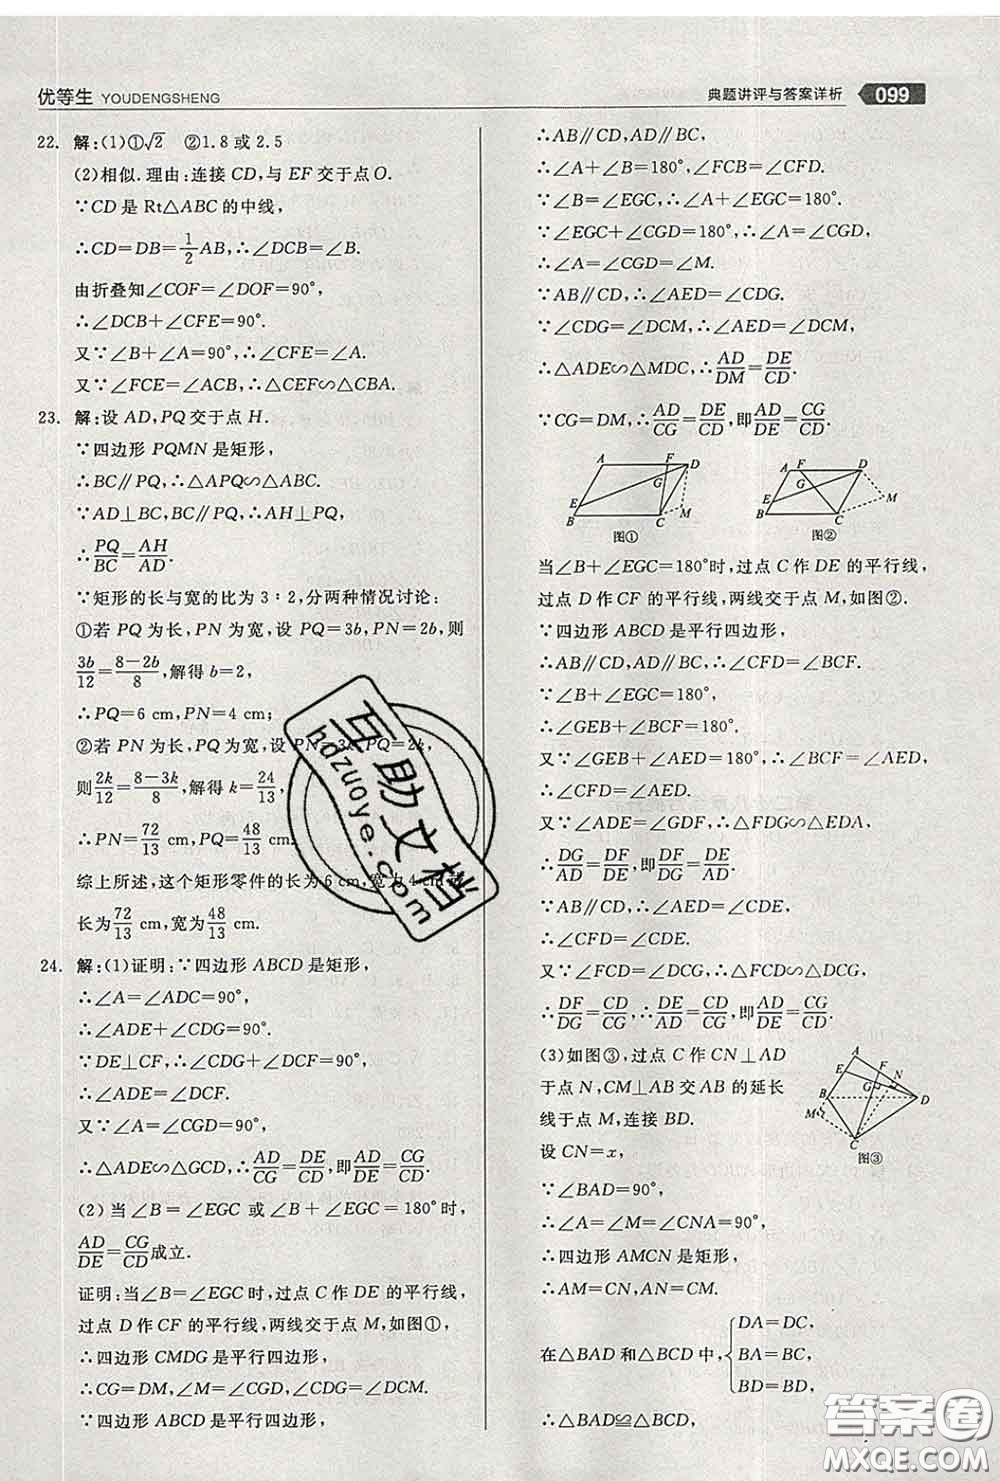 优等生 YOUDENGSHENG
典题讲评与答案详析 099
22. 解:(1)①√2 ②1.8或2.5
(2)相似.理由:连接CD,与EF交于点O.
∵CD是Rt△ABC的中线,
∴CD=DB=1/2AB,∴∠DCB=∠B.
由折叠知∠COF=∠DOF=90°,
∴∠DCB+∠CFE=90°.
又∵∠B+∠A=90°,∴∠CFE=∠A.
又∵∠FCE=∠ACB,∴△CEF∽△CBA.
23. 解:设AD,PQ交于点H.
∵四边形PQMN是矩形,
∴BC∥PQ,∴△APQ∽△ABC.
∵AD⊥BC,BC∥PQ,∴AH⊥PQ,
∴PQ/BC=AH/AD.
∵矩形的长与宽的比为3:2,分两种情况讨论:
①若PQ为长,PN为宽,设PQ=3b,PN=2b,则
3b/12=(8-2b)/8,解得b=2,
∴PQ=6 cm,PN=4 cm;
②若PN为长,PQ为宽,设PN=3k,PQ=2k,
则2k/12=(8-3k)/8,解得k=24/13,
∴PN=72/13 cm,PQ=48/13 cm.
综上所述,这个矩形零件的长为6 cm,宽为4 cm或
长为72/13 cm,宽为48/13 cm.
24. 解:(1)证明:∵四边形ABCD是矩形,
∴∠A=∠ADC=90°,
∴∠ADE+∠CDG=90°.
∵DE⊥CF,∴∠CDG+∠DCF=90°,
∴∠ADE=∠DCF.
又∵∠A=∠CGD=90°,
∴△ADE∽△GCD,∴AD/CG=DE/CD,即AD/DE=CG/CD.
(2)当∠B=∠EGC或∠B+∠EGC=180°时,
AD/DE=CG/CD成立.
证明:当∠B=∠EGC时,过点C作DE的平行线,
过点D作CF的平行线,两线交于点M,如图①,
∴四边形CMDG是平行四边形,
∴CG=DM,∠M=∠CGD,∠CDG=∠DCM.
∵四边形ABCD是平行四边形,
∴AB∥CD,AD∥BC,
∴∠A+∠B=180°,∠FCB=∠CFD.
∵∠B=∠EGC,∴∠A+∠EGC=180°.
∵∠EGC+∠CGD=180°,∴∠A=∠CGD,
∴∠A=∠M.
∵AB∥CD,∴∠AED=∠CDG.
∵∠CDG=∠DCM,∴∠AED=∠DCM,
∴△ADE∽△DMC,∴AD/DM=DE/CD.
∵CG=DM,∴AD/CG=DE/CD,即AD/DE=CG/CD.
A F D G E B C M 图①
A F D G E B C M 图②
当∠B+∠EGC=180°时,过点C作DE的平行线,
过点D作CF的平行线,两线交于点M,如图②.
∵四边形ABCD是平行四边形,
∴AB∥CD,AD∥BC,∴∠CFD=∠BCF.
∵∠B+∠EGC=180°,
∴∠GEB+∠BCF=180°.
又∵∠GEB+∠AED=180°,∴∠BCF=∠AED,
∴∠CFD=∠AED.
又∵∠ADE=∠GDF,∴△DFG∽△EDA,
∴DG/DA=DF/DE,即DF/DG=DE/AD.
∵AB∥CD,∴∠AED=∠CDE,
∴∠CFD=∠CDE.
又∵∠FCD=∠DCG,∴△FCD∽△DCG,
∴DF/DG=CD/CG,∴DE/AD=CD/CG,即AD/DE=CG/CD.
(3)如图③,过点C作CN⊥AD
于点N,CM⊥AB交AB的延长
线于点M,连接BD.
A E F G N B D M C 图③
设CN=x,
∵∠BAD=90°,
∴∠A=∠M=∠CNA=90°,
∴四边形AMCN是矩形,
∴AM=CN,AN=CM.
在△BAD和△BCD中,
DA=DC,
BA=BC,
BD=BD,
∴△BAD≌△BCD,
互助文档
hdzuoye.com
答案圈
MXQE.COM